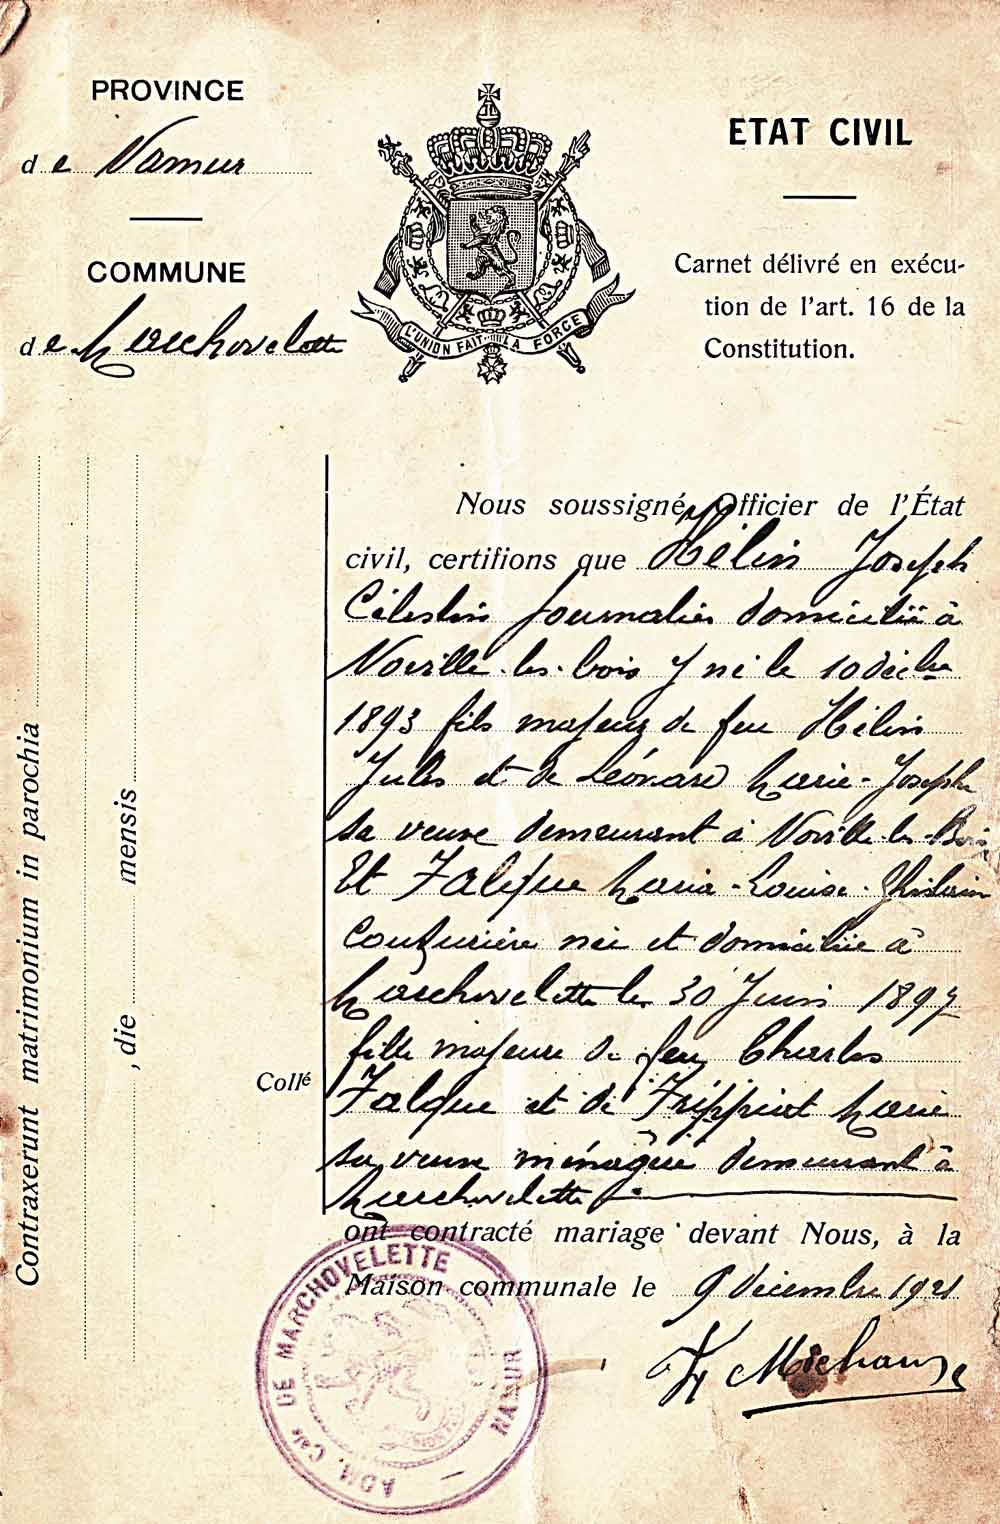 PROVINCE
de Namur
COMMUNE
de Marchovelette
L'UNION FAIT LA FORCE
ETAT CIVIL
Carnet délivré en exécu-
tion de l'art. 16 de la
Constitution.
Contraxerunt matrimonium in parochia
, die mensis
Collé
Nous soussigné, Officier de l'État
civil, certifions que Hélin Joseph
Célestin journalier domicilié à
Noville-les-bois y né le 10 décbre
1893 fils majeur de feu Hélin
Jules et de Léonard Marie-Joseph
sa veuve demeurant à Noville-les-Bois
Et Falque Maria-Louise-Ghislain
Couturière née et domiciliée à
Marchovelette le 30 Juin 1897
fille majeure de feu Charles
Falque et de Frippiat Marie
sa veuve ménagère demeurant à
Marchovelette
ont contracté mariage devant Nous, à la
Maison communale le 9 décembre 1921
ADM. Cale DE MARCHOVELETTE
NAMUR